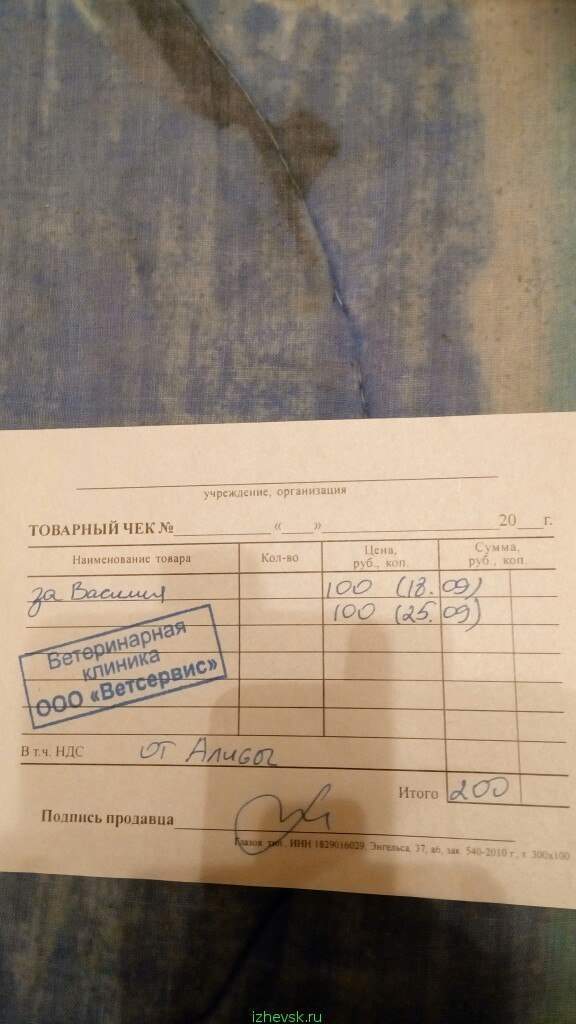 учреждение, организация
ТОВАРНЫЙ ЧЕК № « » 20 г.
Наименование товара Кол-во Цена, руб., коп. Сумма, руб., коп.
за Василия 100 (18.09)
100 (25.09)
Ветеринарная
клиника
ООО «Ветсервис»
В т.ч. НДС от Алисы
Итого 200
Подпись продавца
Глазов. тип., ИНН 1829016029, Энгельса, 37, аб, зак. 540-2010 г., т. 300х100
izhevsk.ru